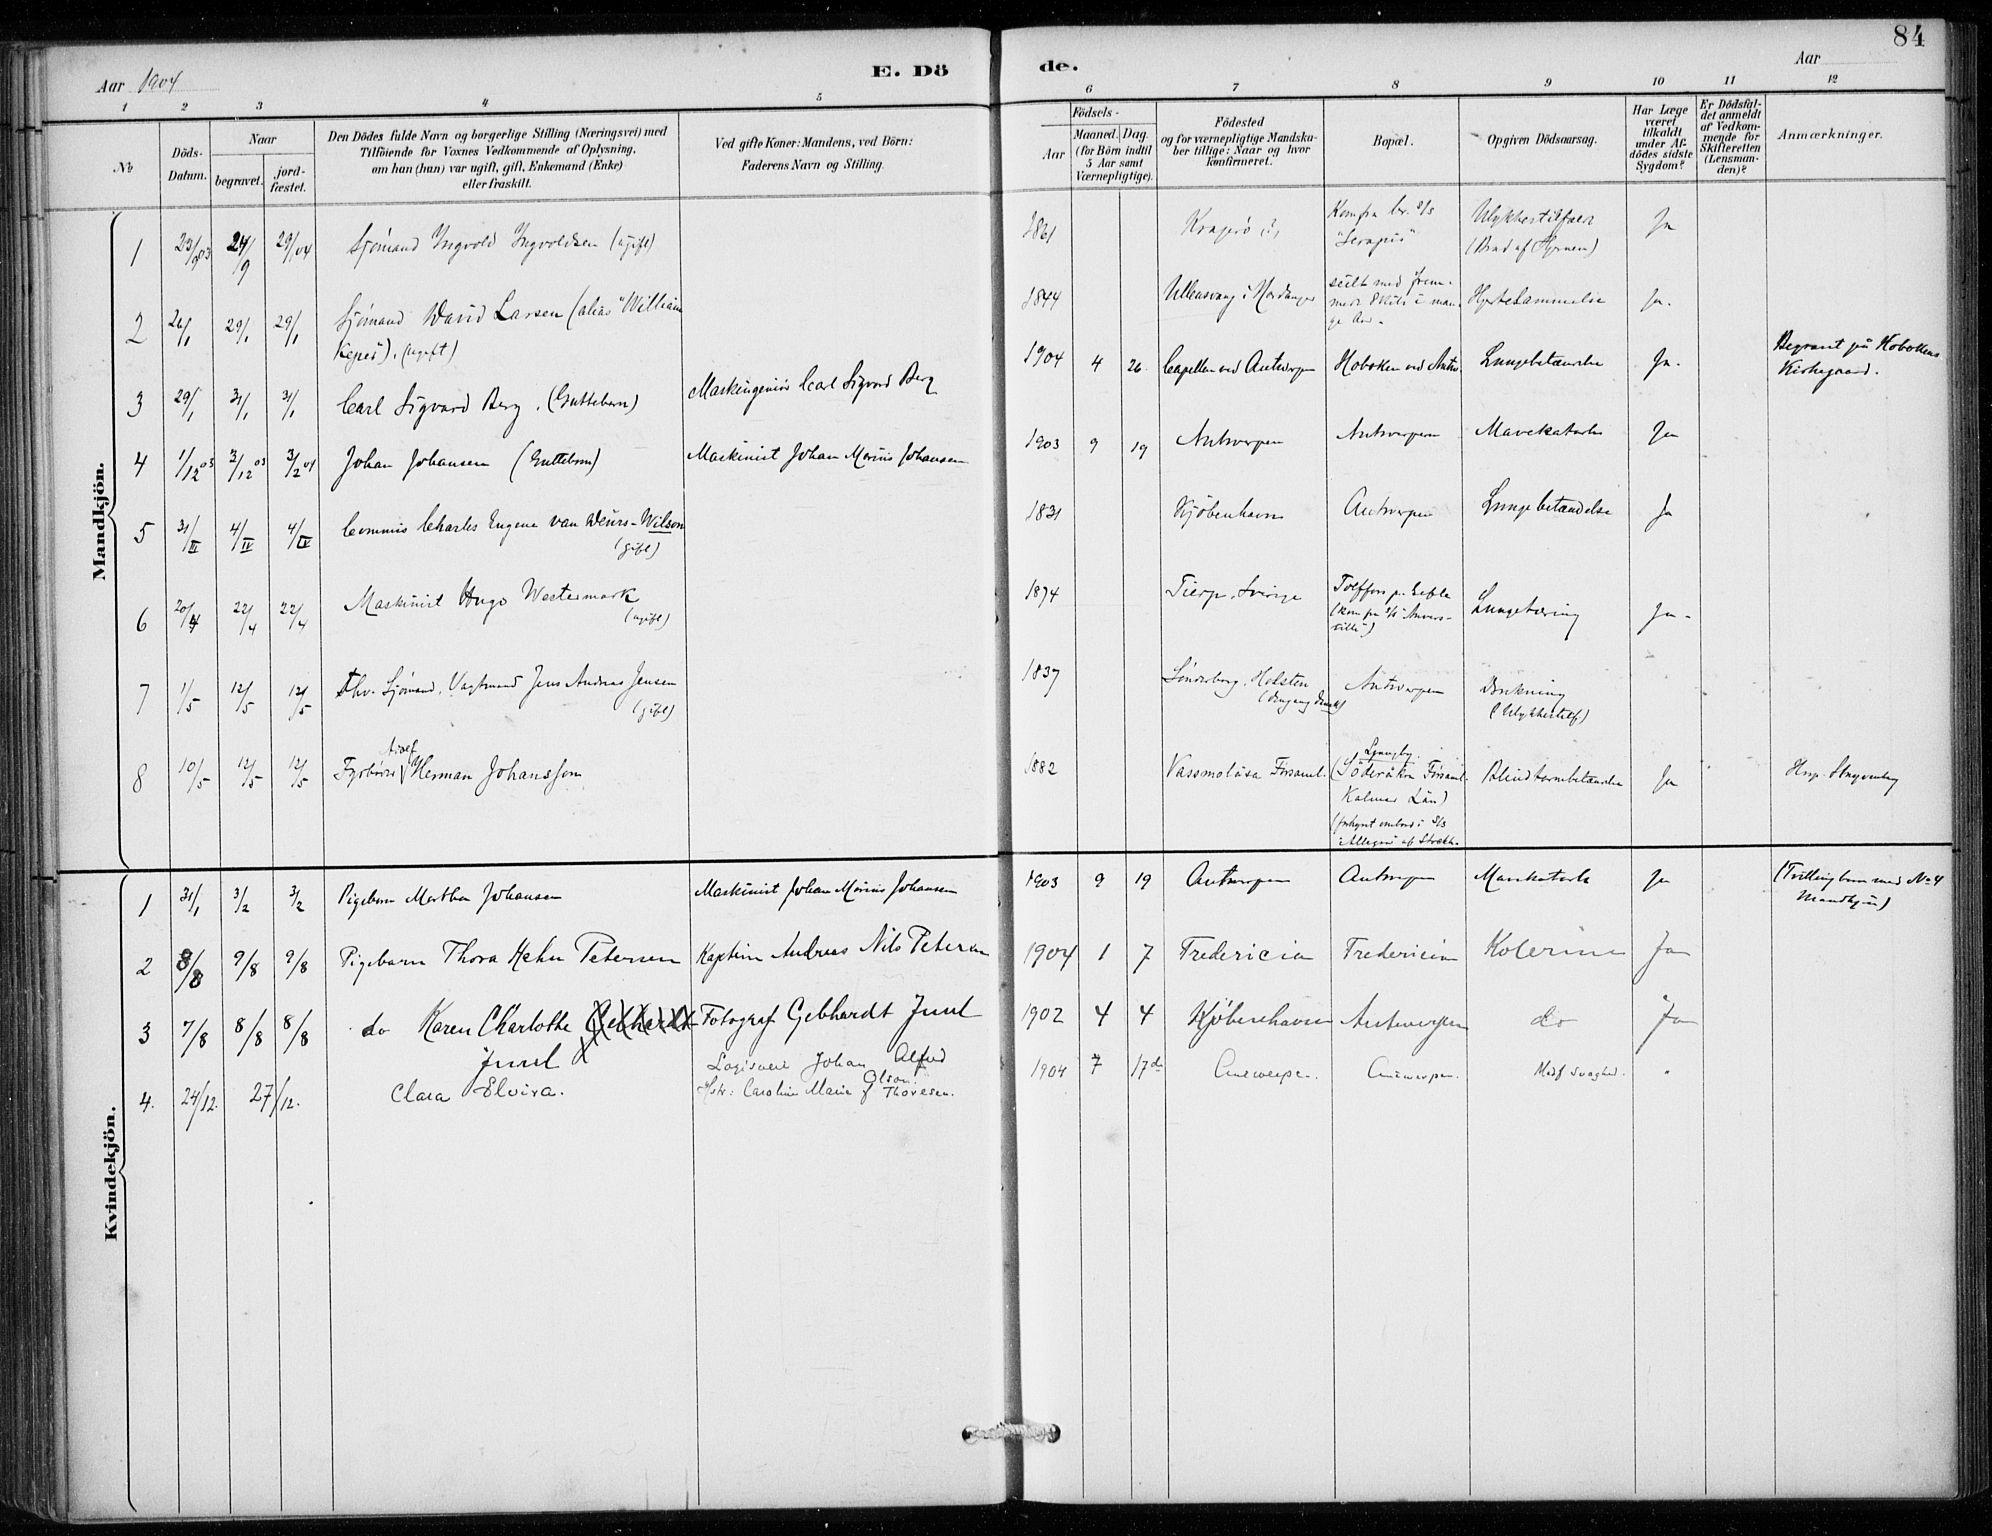 84
Aar 1904
E. Döde.
Aar
1 2 3 4 5 6 7 8 9 10 11 12
No
Döds-Datum.
Naar
begravet.
jord-fæstet.
Den Dödes fulde Navn og borgerlige Stilling (Næringsvei) med
Tilföiende for Voxnes Vedkommende af Oplysning,
om han (hun) var ugift, gift, Enkemand (Enke)
eller fraskilt.
Ved gifte Koner: Mandens, ved Börn:
Faderens Navn og Stilling.
Födsels-
Aar
Maaned. Dag.
(for Börn indtil
5 Aar samt
Værnepligtige).
Födested
og for værnepligtige Mandska-
ber tillige: Naar og hvor
konfirmeret.
Bopæl.
Opgiven Dödsaarsag.
Har Læge
været
tilkaldt
under Af-
dödes sidste
Sygdom?
Er Dödsfal-
det anmeldt
af Vedkom-
mende for
Skifteretten
(Lensman-
den)?
Anmærkninger.
Mandkjön.
1 23/9 03 24/9 29/1 04 Sjömand Ingvold Ingvoldsen (ugift) 1861 Kragerö (?) Kom fra br. s/s "Serapis" Ulykkestilfælde (Brud af Hjernen) Ja
2 26/1 29/1 29/1 Sjömand David Larsen (alias "William Kepes"). (ugift) 1844 Ullensvang i Hardanger seilt med fremmede Skibe i mange Aar. Hjertelammelse Ja.
3 29/1 31/1 31/1 Carl Sigvard Berg. (Guttebarn) Maskingeniör Carl Sigvard Berg 1904 4 26. Capellen ved Antwerpen Hoboken ved Antw. Lungebetændelse Ja. Begravet på Hobokens Kirkegaard.
4 1/12 03 3/12 03 3/2 04 Johan Johansen (Guttebarn) Maskinist Johan Marius Johansen 1903 9 19 Antwerpen Antwerpen Mavekatarh Ja
5 31/III 4/IV 4/IV Commis Charles Eugene van Deurs-Wilson (gift) 1831 Kjöbenhavn Antwerpen Lungebetændelse Ja
6 20/4 22/4 22/4 Maskinist Hugo Westermark (ugift) 1874 Tierp, Sverige Tolffors pr. Gefle (kom fra s/s "Anversville") Lungetæring Ja.
7 1/5 12/5 12/5 fhv. Sjömand, Vagtmand Jens Andreas Jensen (gift) 1837 Sönderborg, Holsten (dengang dansk) Antwerpen Drukning (Ulykkestilf)
8 10/5 12/5 12/5 Fyrböder Adolf Herman Johansson 1882 Vassmolösa Församl. Ljungby (Söderåkra Församl. Kalmar Län) (forhyret ombord i S/s "Allegro" af Stockh. Blindtarmbetændelse Ja Hosp. Stuyvenberg
Kvindekjön.
1 31/1 3/2 3/2 Pigebarn Martha Johansen Maskinist Johan Marius Johansen 1903 9 19 Antwerpen Antwerpen Mavekatarh Ja (Tvillingbarn med No 4 Mandkjön)
2 8/8 9/8 9/8 Pigebarn Thora Petersen Kaptein Andreas Nils Petersen 1904 1 7 Fredericia Fredericia Kolerine Ja
3 7/8 8/8 8/8 do Karen Charlotte Gebhardt Juul Fotograf Gebhardt Juul 1902 4 4 Kjöbenhavn Antwerpen do Ja
4. 24/12. 27/12. Clara Elvira. Logisvert Johan Alfred Olson. Hstr: Caroline Marie f Thoresen. 1904 7 17de Antwerpen. Antwerpen. Medf Svaghed. "